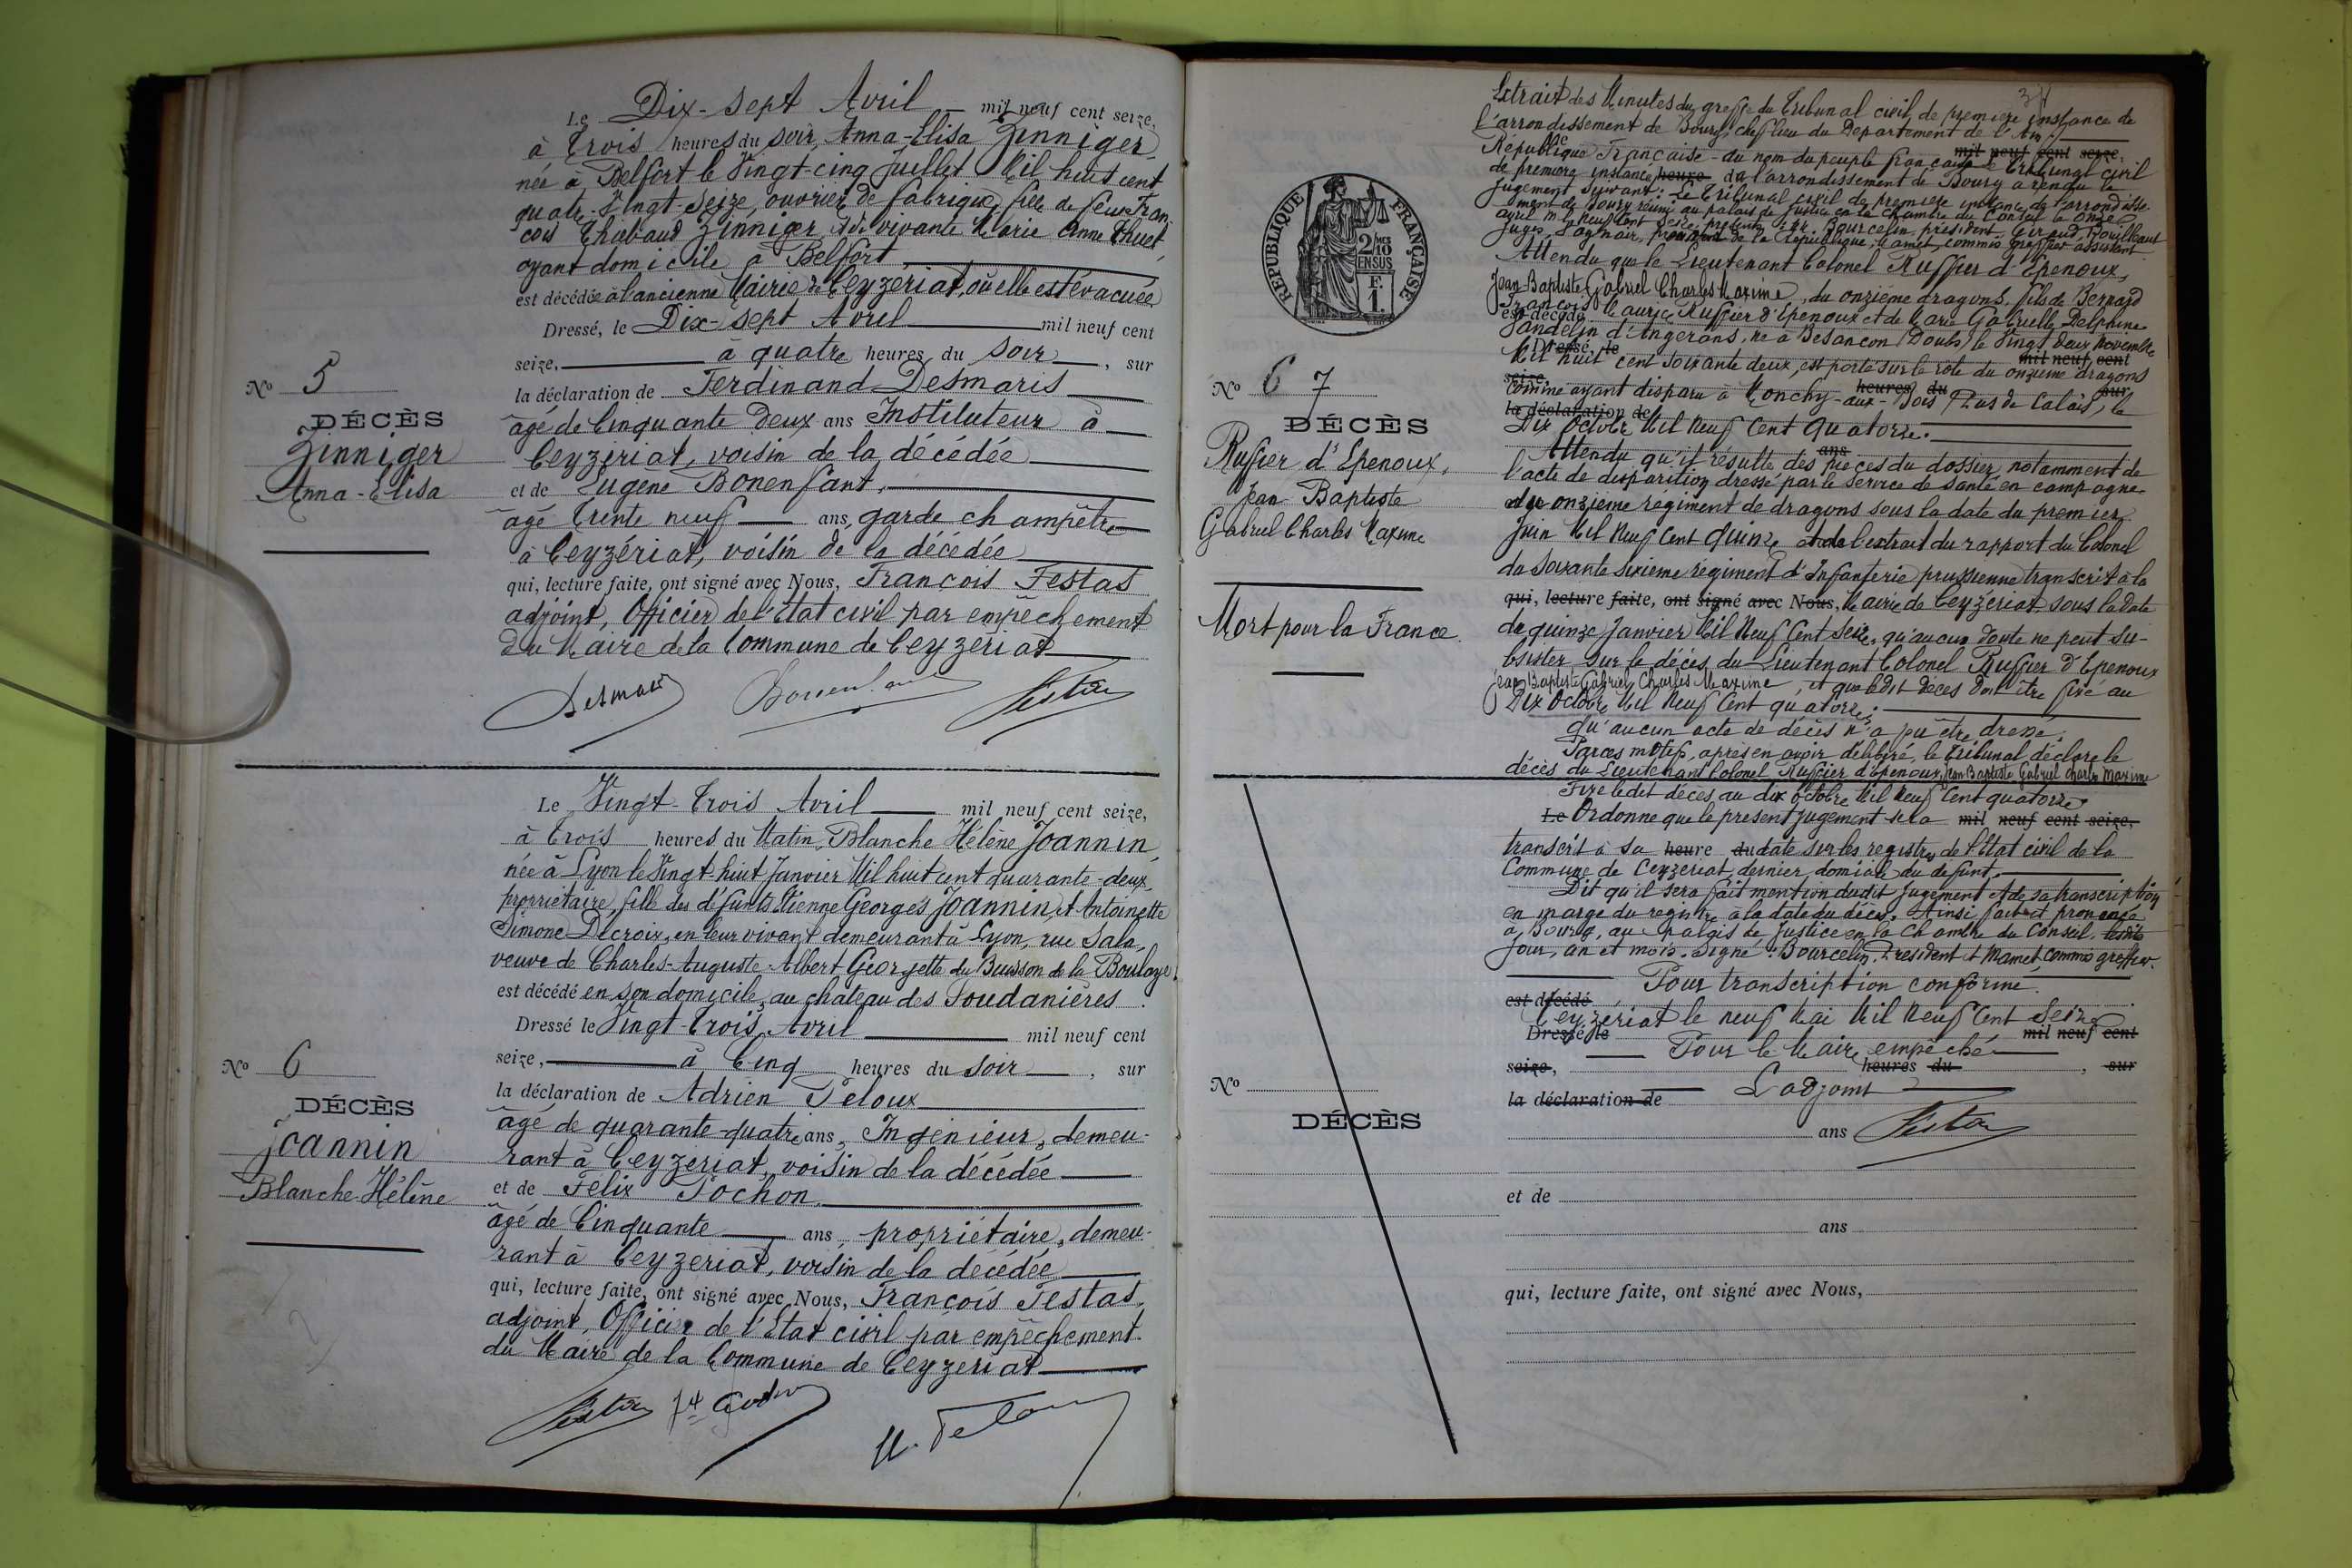 Le Dix-sept Avril mil neuf cent seize,
à Trois heures du soir, Anna-Elisa Zinniger
née à Belfort le Vingt-cinq Juillet Mil huit cent
quatre-vingt-seize, ouvrière de fabrique, fille de feu Fran-
çois Thiébaud Zinniger, et de vivante Marie Anne Thuet,
ayant domicile à Belfort
est décédée à l'ancienne Mairie de Ceyzériat, où elle est évacuée
Dressé, le Dix-sept Avril mil neuf cent
seize, à quatre heures du soir, sur
la déclaration de Ferdinand Desmaris
âgé de Cinquante deux ans Instituteur à
Ceyzériat, voisin de la décédée
et de Eugène Bonenfant,
âgé Trente neuf ans, garde champêtre
à Ceyzériat, voisin de la décédée
qui, lecture faite, ont signé avec Nous, François Festas
adjoint, Officier de l'État civil par empêchement
du Maire de la Commune de Ceyzériat
Nº 5
DÉCÈS
Zinniger
Anna-Elisa
Desmaris Bonenfant Festas
Le Vingt-Trois Avril mil neuf cent seize,
à Trois heures du Matin, Blanche Hélène Joannin,
née à Lyon le Vingt-huit Janvier Mil huit cent quarante-deux,
propriétaire, fille des défunts Etienne Georges Joannin et Antoinette
Simone Decroix, en leur vivant demeurant à Lyon, rue Sala,
veuve de Charles-Auguste-Albert Georgette du Buisson de la Boulaye,
est décédé en son domicile, au chateau des Soudanières.
Dressé le Vingt-Trois Avril mil neuf cent
seize, à Cinq heures du soir, sur
la déclaration de Adrien Peloux
âgé de quarante-quatre ans, Ingénieur, demeu-
rant à Ceyzeriat, voisin de la décédée
et de Félix Pochon,
âgé de Cinquante ans, propriétaire, demeu-
rant à Ceyzeriat, voisin de la décédée
qui, lecture faite, ont signé avec Nous, François Festas,
adjoint, Officier de l'État civil par empêchement
du Maire de la Commune de Ceyzeriat
Nº 6
DÉCÈS
Joannin
Blanche-Hélène
Festas
RÉPUBLIQUE FRANÇAISE
2/10 EN SUS
F. 1.
Nº 6 7
DÉCÈS
Ruffier d'Epenoux,
Jean Baptiste
Gabriel Charles Maxime
Mort pour la France.
Extrait des Minutes du greffe du Tribunal civil de première instance de
l'arrondissement de Bourg, chef lieu du Département de l'Ain.
mil neuf cent seize,
République Française - au nom du peuple français le Tribunal civil
de première instance heure de l'arrondissement de Bourg a rendu le
jugement suivant: Le Tribunal civil de première instance de l'arrondisse-
ment de Bourg réuni au palais de Justice en la chambre du Conseil le onze
avril mil neuf cent seize, présents MM. Bourcelin, président,
juges, procureur de la République, Mamet, commis greffier assistant
Attendu que le Lieutenant Colonel Ruffier d'Epenoux,
Jean-Baptiste Gabriel Charles Maxime, du onzième dragons, fils de Bernard
François Maurice Ruffier d'Epenoux et de Marie Gabrielle Delphine
est décédé
Jandelin d'Angerans, né à Besançon (Doubs) le Vingt deux Novembre
Dressé, le mil neuf cent
Mil huit cent soixante deux, est porté sur le rôle du onzième dragons
seize, heures du sur
comme ayant disparu à Monchy-aux-Bois (Pas de Calais), le
la déclaration de
Dix Octobre Mil Neuf Cent Quatorze.
ans
Attendu qu'il résulte des pièces du dossier, notamment de
l'acte de disparition dressé par le Service de santé en campagne
du onzième régiment de dragons sous la date du premier
Juin Mil Neuf Cent Quinze et de l'extrait du rapport du Colonel
du soixante sixième régiment d'Infanterie prussienne transcrit à la
qui, lecture faite, ont signé avec Nous, Mairie de Ceyzeriat sous la date
du quinze Janvier Mil Neuf Cent Seize, qu'aucun doute ne peut su-
bsister sur le décès du Lieutenant Colonel Ruffier d'Epenoux
Jean Baptiste Gabriel Charles Maxime, et que ledit décès doit être fixé au
Dix Octobre Mil Neuf Cent quatorze;
qu'aucun acte de décès n'a pu être dressé.
Par ces motifs, après en avoir délibéré, le Tribunal déclare le
décès du Lieutenant Colonel Ruffier d'Epenoux, Jean Baptiste Gabriel Charles Maxime
Fixe ledit décès au dix Octobre Mil Neuf Cent quatorze
Le Ordonne que le présent jugement sera mil neuf cent seize,
transcrit à sa heure du date sur les registres de l'Etat civil de la
Commune de Ceyzeriat, dernier domicile du défunt.
Dit qu'il sera fait mention dudit jugement et de sa transcription
en marge du registre à la date du décès. Ainsi fait et prononcé
à Bourg, au palais de Justice en la Chambre du Conseil, lesdits
jour, an et mois. Signé: Bourcelin, Président et Mamet, commis greffier.
Pour transcription conforme
est décédé
Ceyzériat le neuf Mai Mil Neuf Cent Seize
Dressé le mil neuf cent
Pour le Maire empêché
seize, heures du, sur
la déclaration de L'adjoint
ans Festas
et de
ans
qui, lecture faite, ont signé avec Nous,
Nº
DÉCÈS